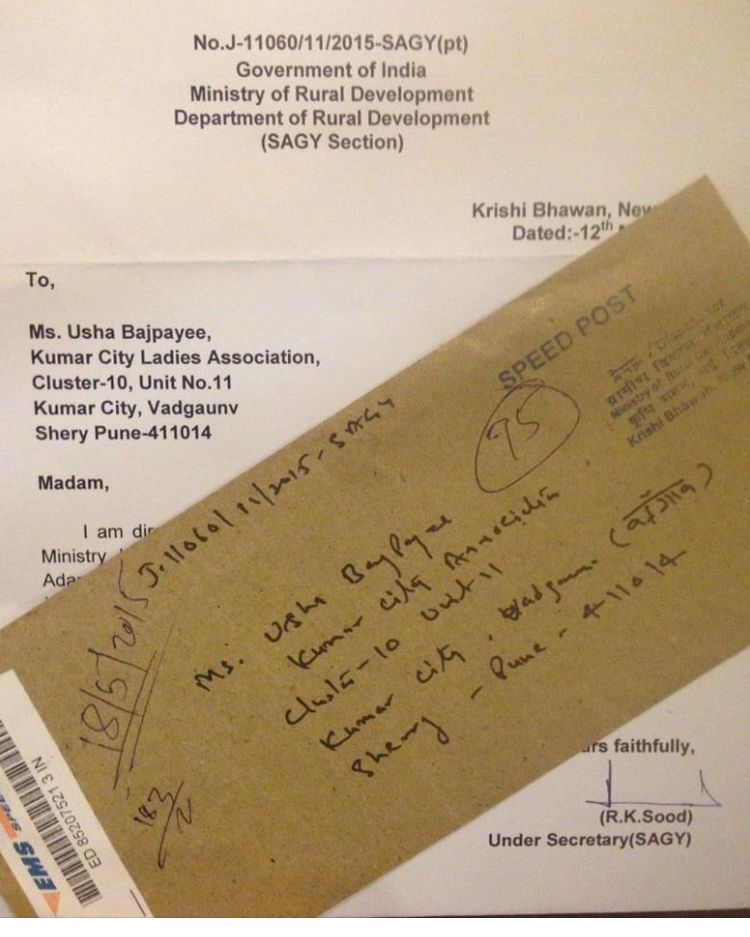 No.J-11060/11/2015-SAGY(pt)
Government of India
Ministry of Rural Development
Department of Rural Development
(SAGY Section)
Krishi Bhawan, New
Dated:-12th
To,
Ms. Usha Bajpayee,
Kumar City Ladies Association,
Cluster-10, Unit No.11
Kumar City, Vadgaunv
Shery Pune-411014
Madam,
I am dir
Ministry
Ada
SPEED POST
95
ग्रामीण विकास
Ministry of Rural
कृषि भवन, नई
Krishi Bhawan,
J-11060/11/2015-SAGY
18/5/2015
Ms. Usha BajPyee
Kumar City Association
Cluster-10 Unit 11
Kumar City, Wadgaun (वडगाव)
Sherry - Pune - 411014
EMS SPEE
ED 85207521 3 IN
urs faithfully,
(R.K.Sood)
Under Secretary(SAGY)